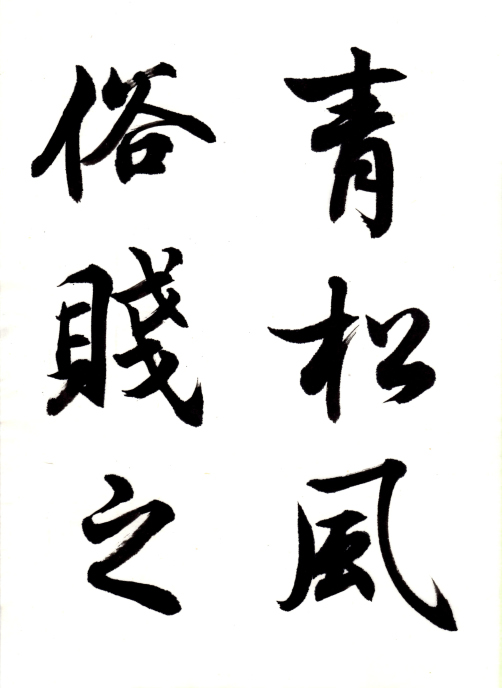 青松風
俗賤之